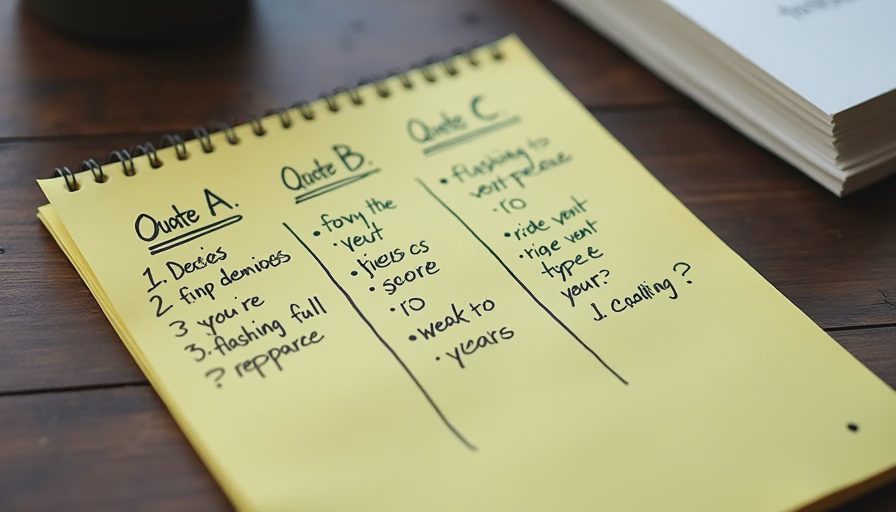 Quote A.
1. Decies
2 finp demioes
3 you're
3. flashing full
? repparce
Qucte B.
• fovy the
• yeut
• jies cs
• score
• ro
• weak to
• years
Qucte C.
• flushing to
vort pecese
• ro
• ride vent
• rige vent
typee
your?
1. Caalling?